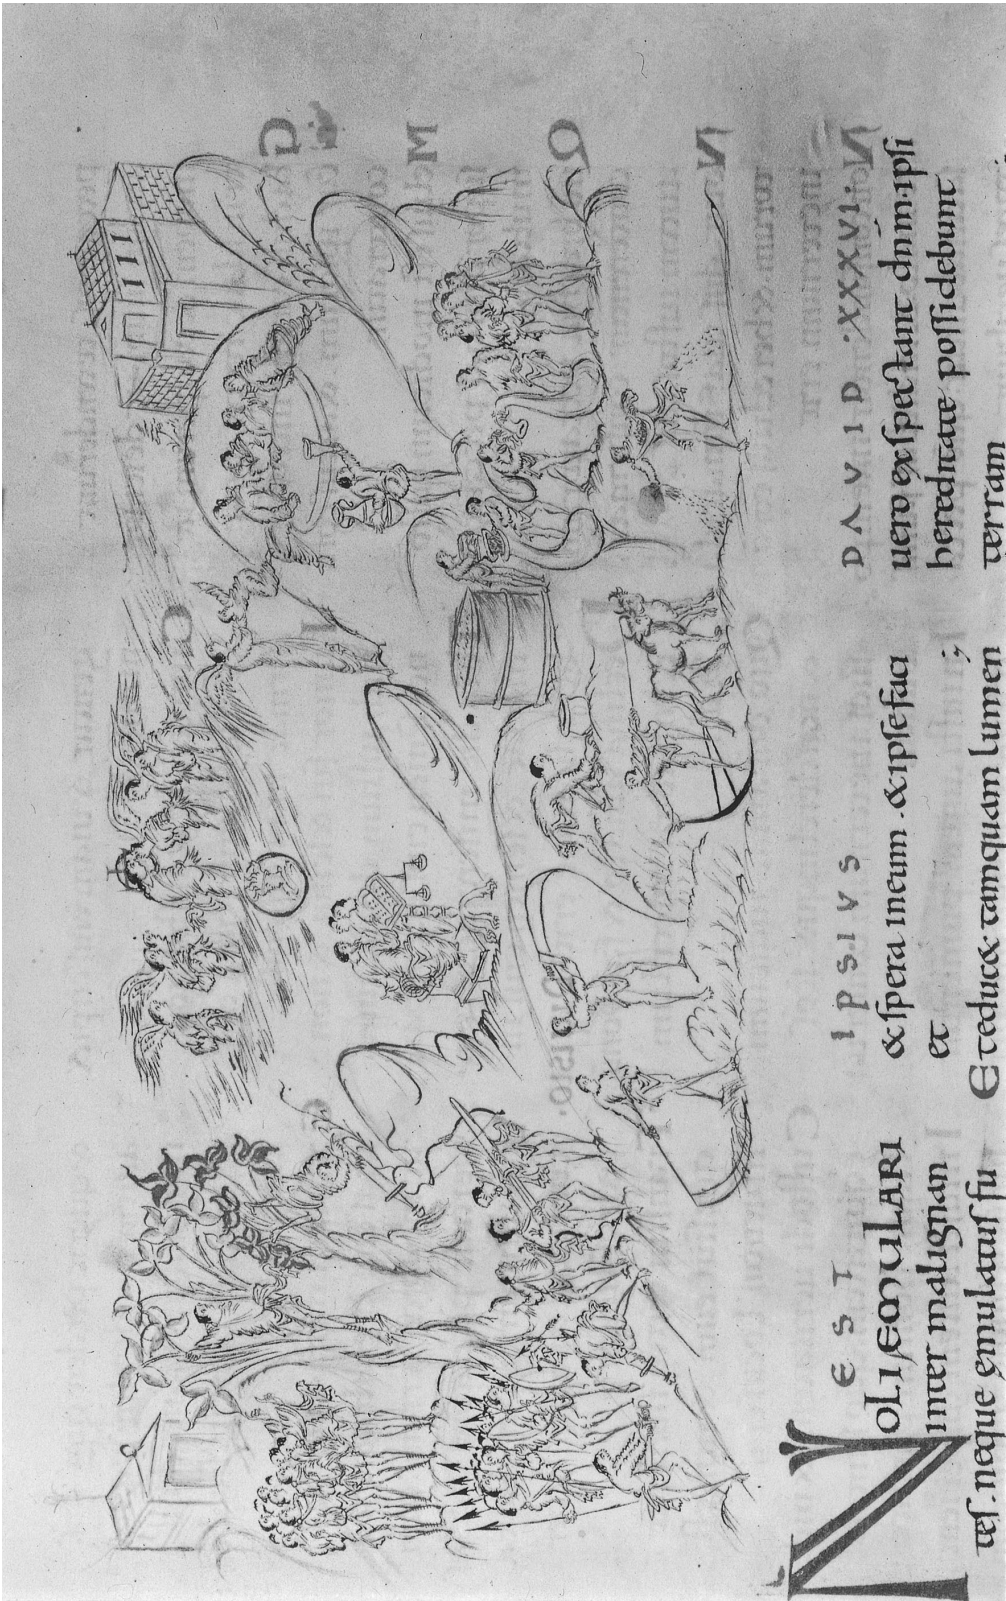 EST IPSIVS DAVID .XXXVI.
NOLI ÆMULARI
inter malignan
tes. neque ęmulatus fu
& spera in eum . & ipse faci
et ;
Et educ& tamquam lumen
uero exspectant dn̄m. ipsi
hereditate possidebunt
terram